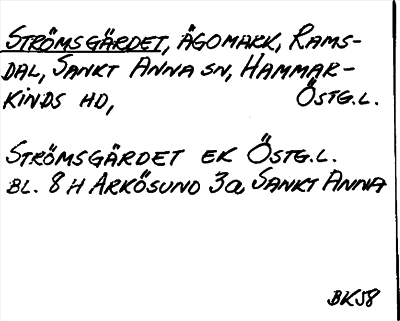 STRÖMSGÄRDET, ÄGOMARK, RAMS-
DAL, SANKT ANNA SN, HAMMAR-
KINDS HD, ÖSTG.L.
STRÖMSGÄRDET EK ÖSTG.L.
BL. 8 H ARKÖSUND 3a, SANKT ANNA
BK58